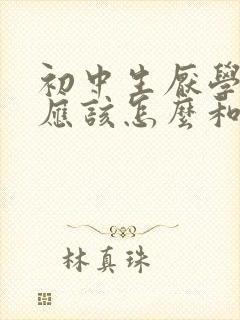 初中生厌學
應該怎麼和
林真珠